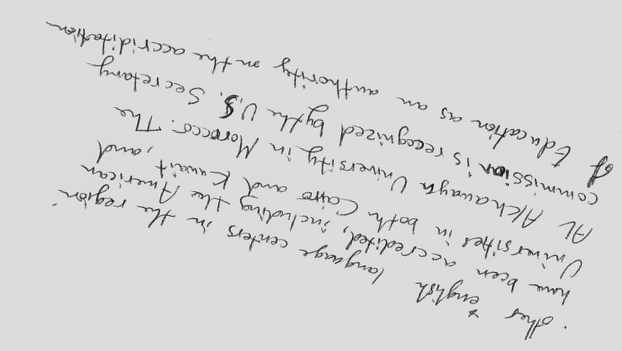 other english language centers in the region
have been accredited, including the American
Universities in both Cairo and Kuwait, and
AL Akhawayn University in Morocco. The
commission is recognized by the U.S. Secretary
of Education as an authority on the accriditation